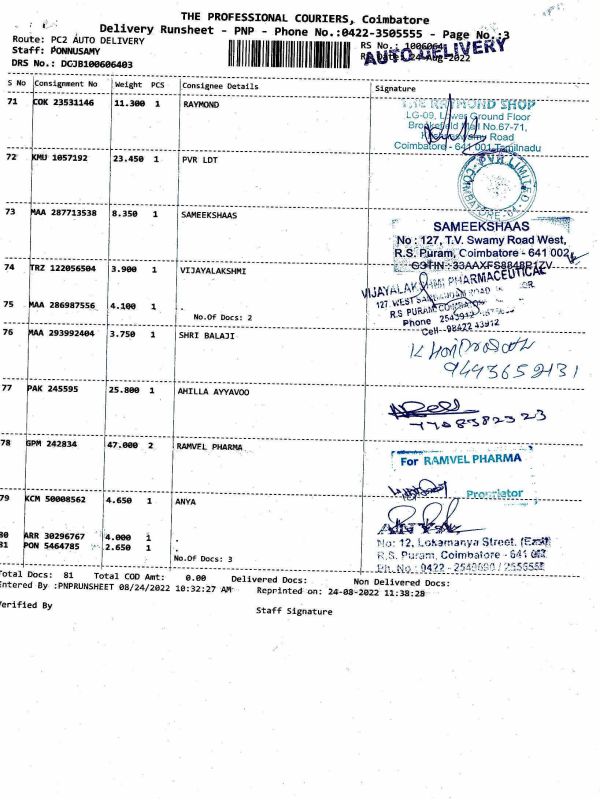 THE PROFESSIONAL COURIERS, Coimbatore
Delivery Runsheet - PNP - Phone No.:0422-3505555 - Page No.:3
Route: PC2 AUTO DELIVERY
RS No.: 1006064
Staff: PONNUSAMY
24-Aug-2022
AUTO DELIVERY
DRS No.: DCJB100606403
S No Consignment No Weight PCS Consignee Details Signature
71 COK 23531146 11.300 1 RAYMOND
LG-09, Lower Ground Floor
No.67-71,
Road
Coimbatore - 641 001 Tamilnadu
72 KMU 1057192 23.450 1 PVR LDT
PVR LIMITED
COIMBATORE-
73 MAA 287713538 8.350 1 SAMEEKSHAAS
SAMEEKSHAAS
No : 127, T.V. Swamy Road West,
R.S. Puram, Coimbatore - 641 002
GSTIN :
74 TRZ 122056504 3.900 1 VIJAYALAKSHMI
VIJAYALAKSHMI PHARMACEUTICAL
127, WEST
R.S PURAM
75 MAA 286987556 4.100 1
No.Of Docs: 2
Phone
Cell- 98422 43912
76 MAA 293992404 3.750 1 SHRI BALAJI
77 PAK 245595 25.800 1 AHILLA AYYAVOO
78 GPM 242834 47.000 2 RAMVEL PHARMA
For RAMVEL PHARMA
Proprietor
79 KCM 50008562 4.650 1 ANYA
80 ARR 30296767 4.000 1 .
81 PON 5464785 2.650 1 .
No.Of Docs: 3
No: 12, Lokamanya Street, (East)
R.S. Puram, Coimbatore - 641 002
Ph. No : 0422 -
Total Docs: 81 Total COD Amt: 0.00 Delivered Docs: Non Delivered Docs:
Entered By :PNPRUNSHEET 08/24/2022 10:32:27 AM Reprinted on: 24-08-2022 11:38:28
Verified By
Staff Signature